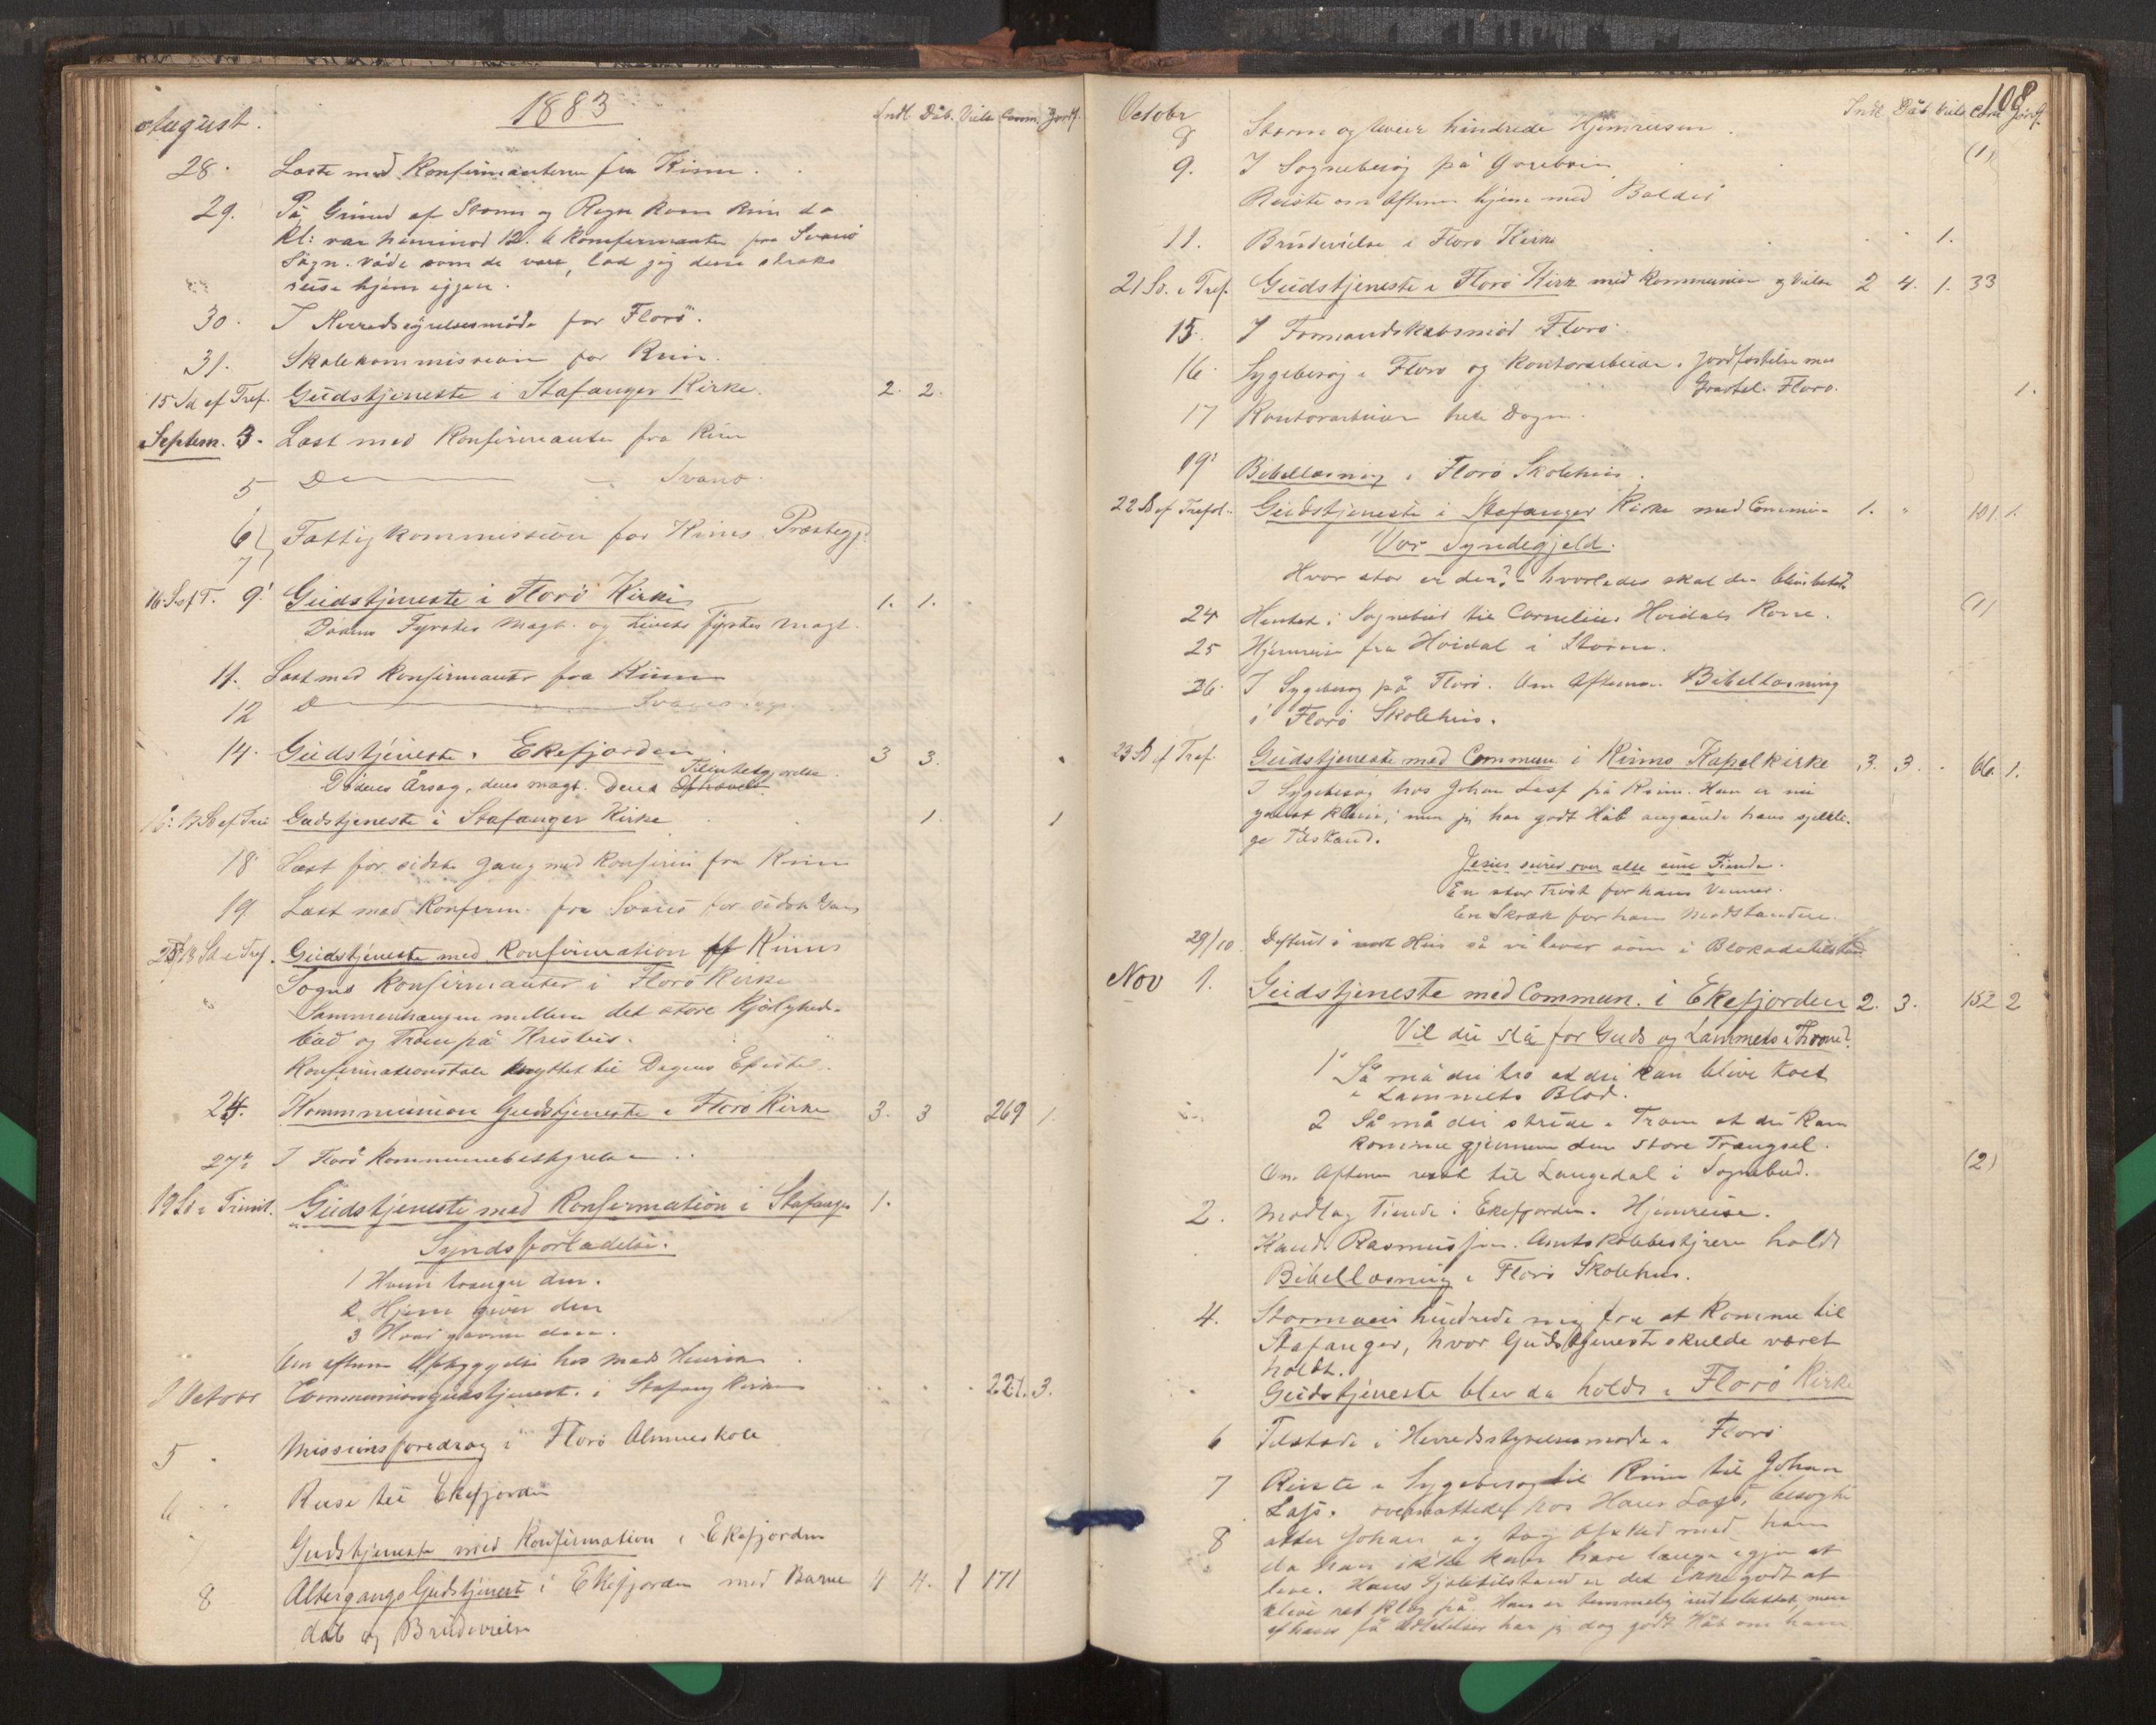 August.
1883
Indl. Dåb. Viels. Comm. Jordf.
28. Læste med Konfirmanterne fra Kinn.
29. På Grund af Storm og Regn kom kun da
Kl: var henimod 12. 6 Konfirmanter fra Svanø
Sogn. Våde som de vare, lod jeg dem straks
reise hjem igjen.
30. I Herredsstyrelsesmøde for Florø.
31. Skolekommission for Kinn.
15 Sd ef Tref. Gudstjeneste i Stafanger Kirke. 2. 2.
Septem. 3. Læst med Konfirmanter fra Kinn
5 Do Svanø.
6 Fattigkommission for Kinns Præstegj.
7
16 S. ef T. 9. Gudstjeneste i Florø Kirke 1. 1.
Dødens Fyrstes Magt. og Livets Fyrstes Magt.
11. Læst med Konfirmanter fra Kinn
12 D Svanø
14. Gudstjeneste i Ekefjorden 3 3.
Dødens Årsag, dens magt. Dens Tilintetgjørelse.
Gudstjeneste i Stafanger Kirke 1. 1
18 Læst for sidste Gang med Konfirm fra Kinn
19 Læst med Konfirm. fra Svanø for sidste Gang
23/18 Sd e Tref. Gudstjeneste med Konfirmation af Kinns
Sogns Konfirmanter i Florø Kirke
Sammenhængen mellem det store Kjærligheds-
bud og Troen på Kristus.
Konfirmationstale knyttet til Dagens Epistel.
24. Kommunion Gudstjeneste i Florø Kirke 3. 3 269 1.
27 I Florø Kommunebestyrelse
19 Sd e Trinit. Gudstjeneste med Konfirmation i Stafanger 1.
Syndsforladelse.
1 Hvem trænger den.
2 Hvem giver den
3 Hvad gavner den.
Om aftenen Opbyggelse hos Mads Henrik
1 October Communiongudstjenest. i Stafang Kirke 221. 3.
5 Missionsforedrag i Florø Almueskole
6 Reise til Ekefjorden
7 Gudstjeneste med Konfirmation i Ekefjorden
8 Altergangs Gudstjenest i Ekefjorden med Barne 4 4. 1 171
dåb og Brudevielse
Octobr
108
Indl Dåb Viels Com Jordf.
8 Storm og Uveir hindrede Hjemreisen.
9. I Sognebesøg på (1)
Reiste om Aftenen hjem med Balder
11. Brudevielse i Florø Kirke 1.
21 Sø. e Tref. Gudstjeneste i Florø Kirk med Kommunion og Vielse 2 4. 1. 33
15. I Formandskabsmød i Florø.
16. Sygebesøg i Florø og Kontorarbeide. Jordfæstelse
Florø. 1.
17 Kontorarbeide hele Dagen.
19 Bibellæsning i Florø Skolehus.
22 Sd ef Trefol. Gudstjeneste i Stafanger Kirke med Commun- 1. " 101. 1.
Vor Syndegjeld.
Hvor stor er den? - hvorledes skal den blive betalt?
24 Hentet i Sognebud til Cornelius Hovdals Kone. (1)
25 Hjemreise fra Hovdal i Storm.
26. I Sygebesøg på Florø. Om Aftenen Bibellæsning
i Florø Skolehus.
23 Sd ef Tref. Gudstjeneste med Commun i Kinns Kapelkirke 3. 3. 66. 1.
I Sygebesøg hos Johan på Kinn. Han er nu
men jeg har godt Håb angående hans sjæleli-
ge Tilstand.
Jesus seirer over alle sine Fiender.
En stor Trøst for hans Venner.
En Skræk for hans Modstandere.
29/10 Difterit i vort Hus så vi lever som i Blokadetilstand
Nov 1. Gudstjeneste med Commun. i Ekefjorden 2. 3. 152 2
Vil du stå for Guds og Lammets Throne?
1 Så må du tro at du kan blive toet
i Lammets Blod.
2 Så må du stride i Troen at du kan
komme gjennem den store Trængsel.
Om Aftenen reist til Langedal i Sognebud. (2)
2. Modtog Tiende i Ekefjorden. Hjemreise.
Kand. Rasmussen. Amtskolebestyrer holdt
Bibellæsning i Florø Skolehus.
4. Stormveir hindrede mig fra at komme til
Stafanger, hvor Gudstjeneste skulde været
holdt.
Gudstjeneste blev da holdt i Florø Kirke
6 Tilstede i Herredsstyrelsesmøde i Florø
7 Reiste i Sygebesøg til Kinn til Johan
overnattede hos Hans besøgte
8 atter Johan og tog Afsked med ham
da han ikke kan have længe igjen at
leve. Hans Sjæletilstand er det ikke godt at
blive ret klog på. Han er temmelig indesluttet, men
af hans få Udtalelser har jeg dog godt Håb om ham